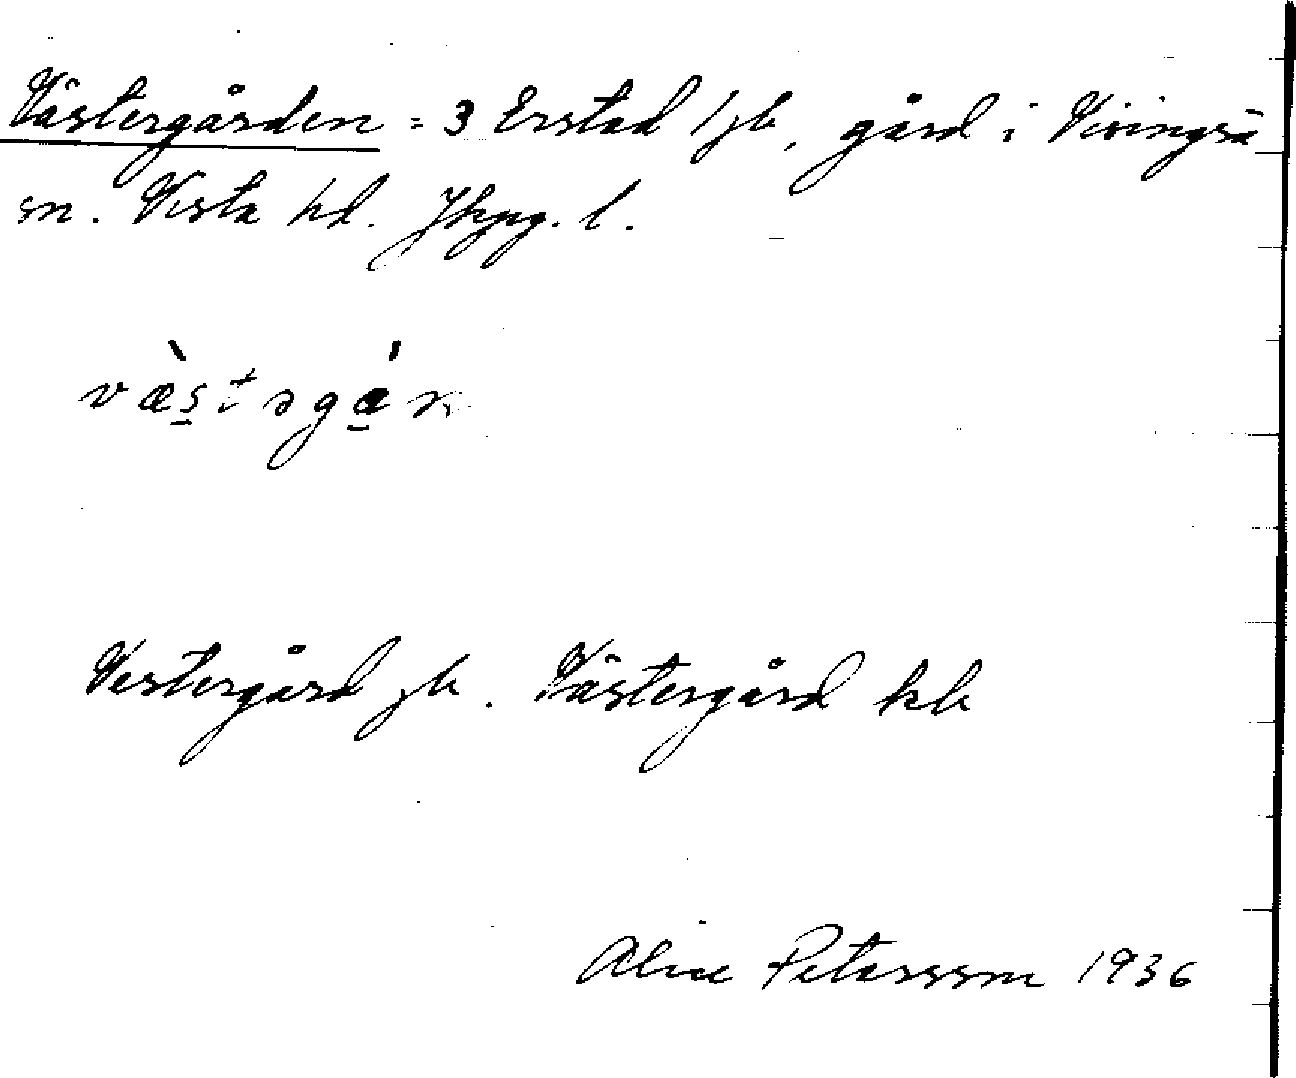 Västergården = 3 Erstad 1 jb, gård i Visingsö
sn. Vista hd. Jkpg. l.
væ̀stəgár
Vestergård jb. Västergård kb
Alice Petersson 1936